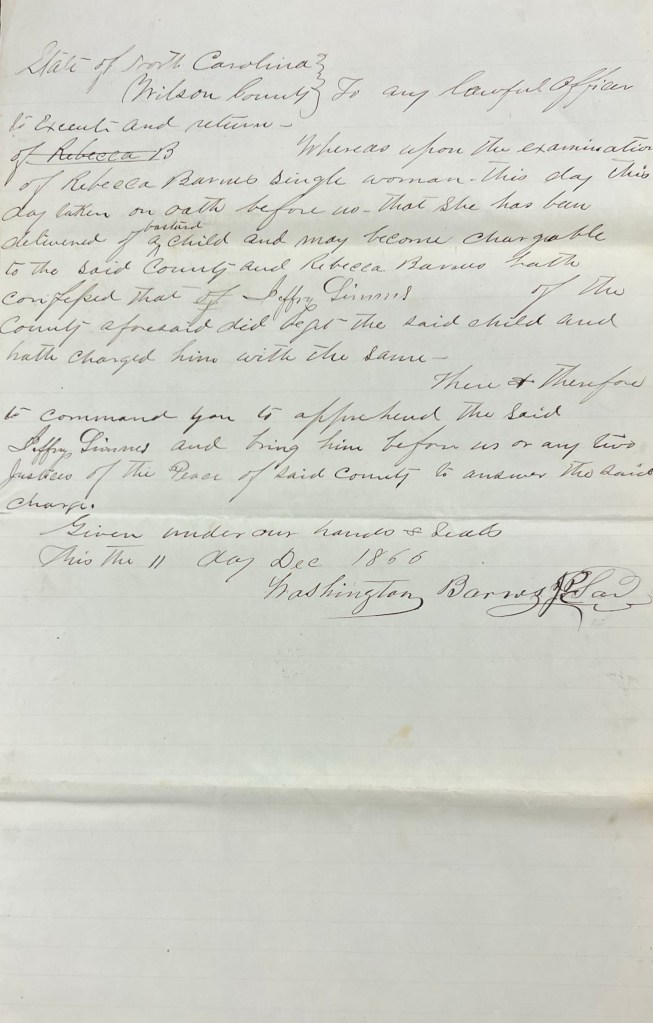 State of North Carolina }
Wilson County } To any lawful Officer
to Execute and return –
of Rebecca B Whereas upon the examination
of Rebecca Barnes Single woman – this day this
day taken on oath before us – that She has been
delivered of a bastard child and may become chargable
to the said County and Rebecca Barnes hath
confessed that of Jeffry Simms of the
County aforesaid did begt the said child and
hath charged him with the same –
There & therefore
to command you to apprehend the said
Jeffry Simms and bring him before us or any two
Justices of the Peace of said County to answer the said
charge.
Given under our hands & Seals
this the 11 day Dec 1866
Washington Barnes JP